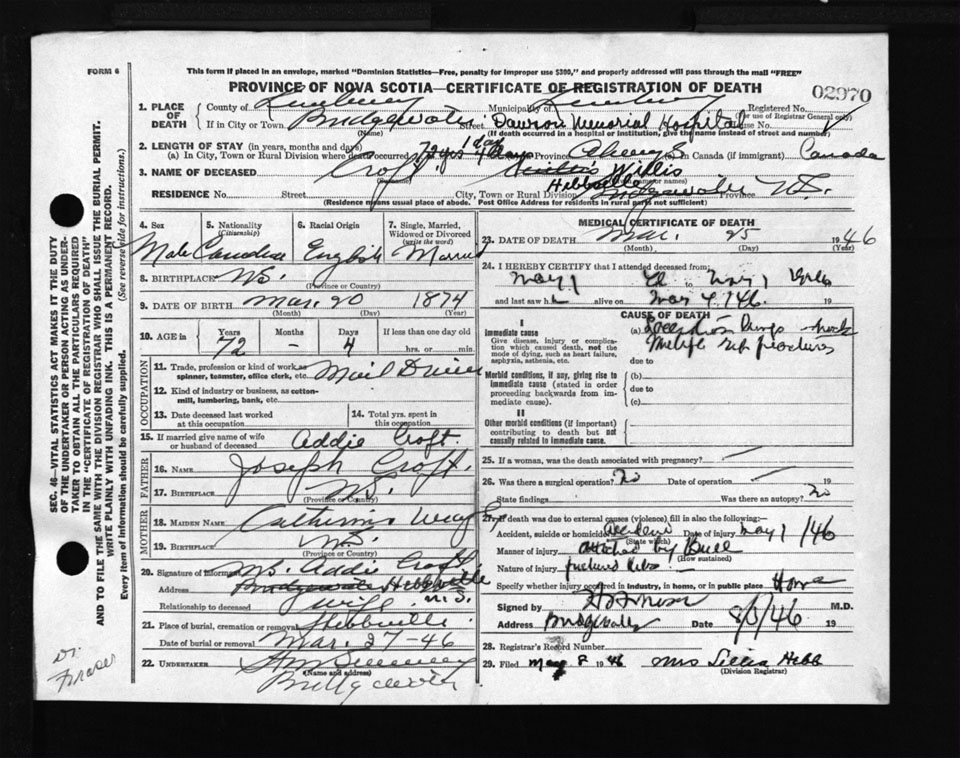 FORM 6
This form if placed in an envelope, marked "Dominion Statistics—Free, penalty for improper use $300," and properly addressed will pass through the mail "FREE"
PROVINCE OF NOVA SCOTIA—CERTIFICATE OF REGISTRATION OF DEATH
02970
1. PLACE OF DEATH
County of Lunenburg Municipality of Lunenburg Registered No.
(For use of Registrar General only)
If in City or Town Bridgewater Street Dawson Memorial Hospital House No.
(Name) (If death occurred in a hospital or institution, give the name instead of street and number)
2. LENGTH OF STAY (in years, months and days)
(a) In City, Town or Rural Division where death occurred 72 yrs 4 days 1 day Province Always In Canada (if immigrant) Canada
3. NAME OF DECEASED Croft Willis
RESIDENCE No. Street City, Town or Rural Division Hebbville Bridgewater N.S.
(Residence means usual place of abode. Post Office Address for residents in rural parts not sufficient)
4. Sex
Male
5. Nationality (Citizenship)
Canadian
6. Racial Origin
English
7. Single, Married, Widowed or Divorced (write the word)
Married
8. BIRTHPLACE N.S.
(Province or Country)
9. DATE OF BIRTH Mar. 20 1874
(Month) (Day) (Year)
10. AGE in Years Months Days If less than one day old
72 – 4 hrs. or min.
OCCUPATION
11. Trade, profession or kind of work as spinner, teamster, office clerk, etc. Mail Driver
12. Kind of industry or business, as cotton-mill, lumbering, bank, etc.
13. Date deceased last worked at this occupation
14. Total yrs. spent in this occupation
15. If married give name of wife or husband of deceased Addie Croft
FATHER
16. NAME Joseph Croft.
17. BIRTHPLACE N.S.
(Province or Country)
MOTHER
18. MAIDEN NAME Catherine
19. BIRTHPLACE N.S.
(Province or Country)
20. Signature of Informant Mrs. Addie Croft
Address Bridgewater Hebbville N.S.
Relationship to deceased wife
21. Place of burial, cremation or removal Hebbville
Date of burial or removal Mar. 27-46
22. UNDERTAKER
(Name and address)
Bridgewater
MEDICAL CERTIFICATE OF DEATH
23. DATE OF DEATH Mar. 25 1946
(Month) (Day) (Year)
24. I HEREBY CERTIFY that I attended deceased from
May 1 to May 1 1946
and last saw h alive on May 4, 46. 19
CAUSE OF DEATH
I
Immediate cause
Give disease, injury or complication which caused death, not the mode of dying, such as heart failure, asphyxia, asthenia, etc.
(a) lungs shock
Multiple rib fractures
due to
Morbid conditions, if any, giving rise to immediate cause (stated in order proceeding backwards from immediate cause).
(b)
due to
(c)
II
Other morbid conditions (if important) contributing to death but not causally related to immediate cause.
25. If a woman, was the death associated with pregnancy?
26. Was there a surgical operation? No Date of operation 19
State findings Was there an autopsy? No
27. If death was due to external causes (violence) fill in also the following:—
Accident, suicide or homicide? Accident Date of injury May 1 /46
(State which)
Manner of injury attacked by Bull
(How sustained)
Nature of injury fractured Ribs
Specify whether injury occurred in industry, in home, or in public place Home
Signed by M.D.
Address Bridgewater Date 8/5/46 19
28. Registrar's Record Number
29. Filed May 8 1946 Mrs Hebb
(Division Registrar)
SEC. 46—VITAL STATISTICS ACT MAKES IT THE DUTY
OF THE UNDERTAKER OR PERSON ACTING AS UNDER-
TAKER TO OBTAIN ALL THE PARTICULARS REQUIRED
IN THE "CERTIFICATE OF REGISTRATION OF DEATH"
AND TO FILE THE SAME WITH THE DIVISION REGISTRAR WHO SHALL ISSUE THE BURIAL PERMIT.
WRITE PLAINLY WITH UNFADING INK. THIS IS A PERMANENT RECORD.
Every item of information should be carefully supplied. (See reverse side for instructions.)
Dr.
Fraser